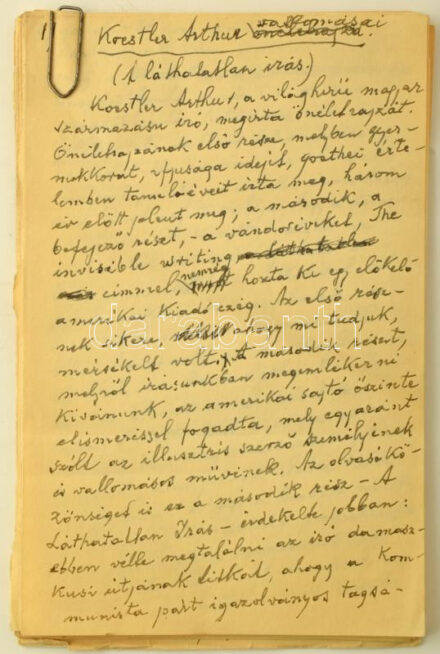 1
Koestler Arthur vallomásai
(A láthatatlan írás.)
Koestler Arthur, a világhírü magyar
származásu író, megírta önéletrajzát.
Önéletrajzának első része, melyben gyer-
mekkorát, ifjusága idejét, goethei érte-
lemben tanulóéveit írta meg, három
év előtt jelent meg; a második, a
befejező részt, - a vándoréveket, The
invisible writing
címmel, nemrég hozta ki egy előkelő
amerikai kiadó cég. Az első rész-
nek sikere, ahogy mi tudjuk,
mérsékelt volt, A második részt,
melyről írásunkban megemlékezni
kivánunk, az amerikai sajtó őszinte
elismeréssel fogadta, mely egyaránt
szólt az illusztris szerző személyének
és vallomásos művének. Az olvasókö-
zönséget is ez a második rész - A
Láthatatlan Irás - érdekelte jobban:
ebben vélte megtalálni az író damasz-
kusi utjának titkát, ahogy a Kom-
munista párt igazolványos tagsá-
darabanth